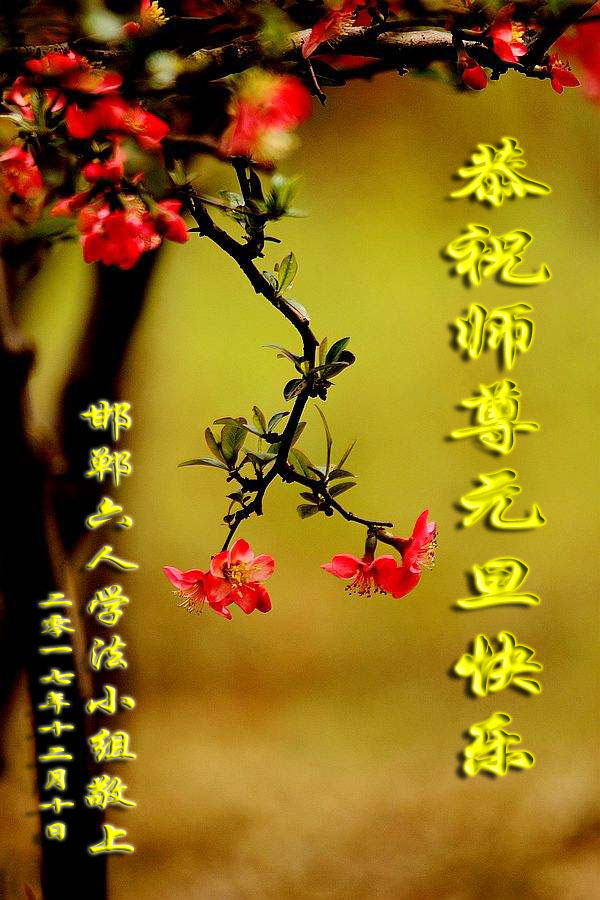 恭祝师尊元旦快乐
邯郸六人学法小组敬上
二零一七年十二月十日